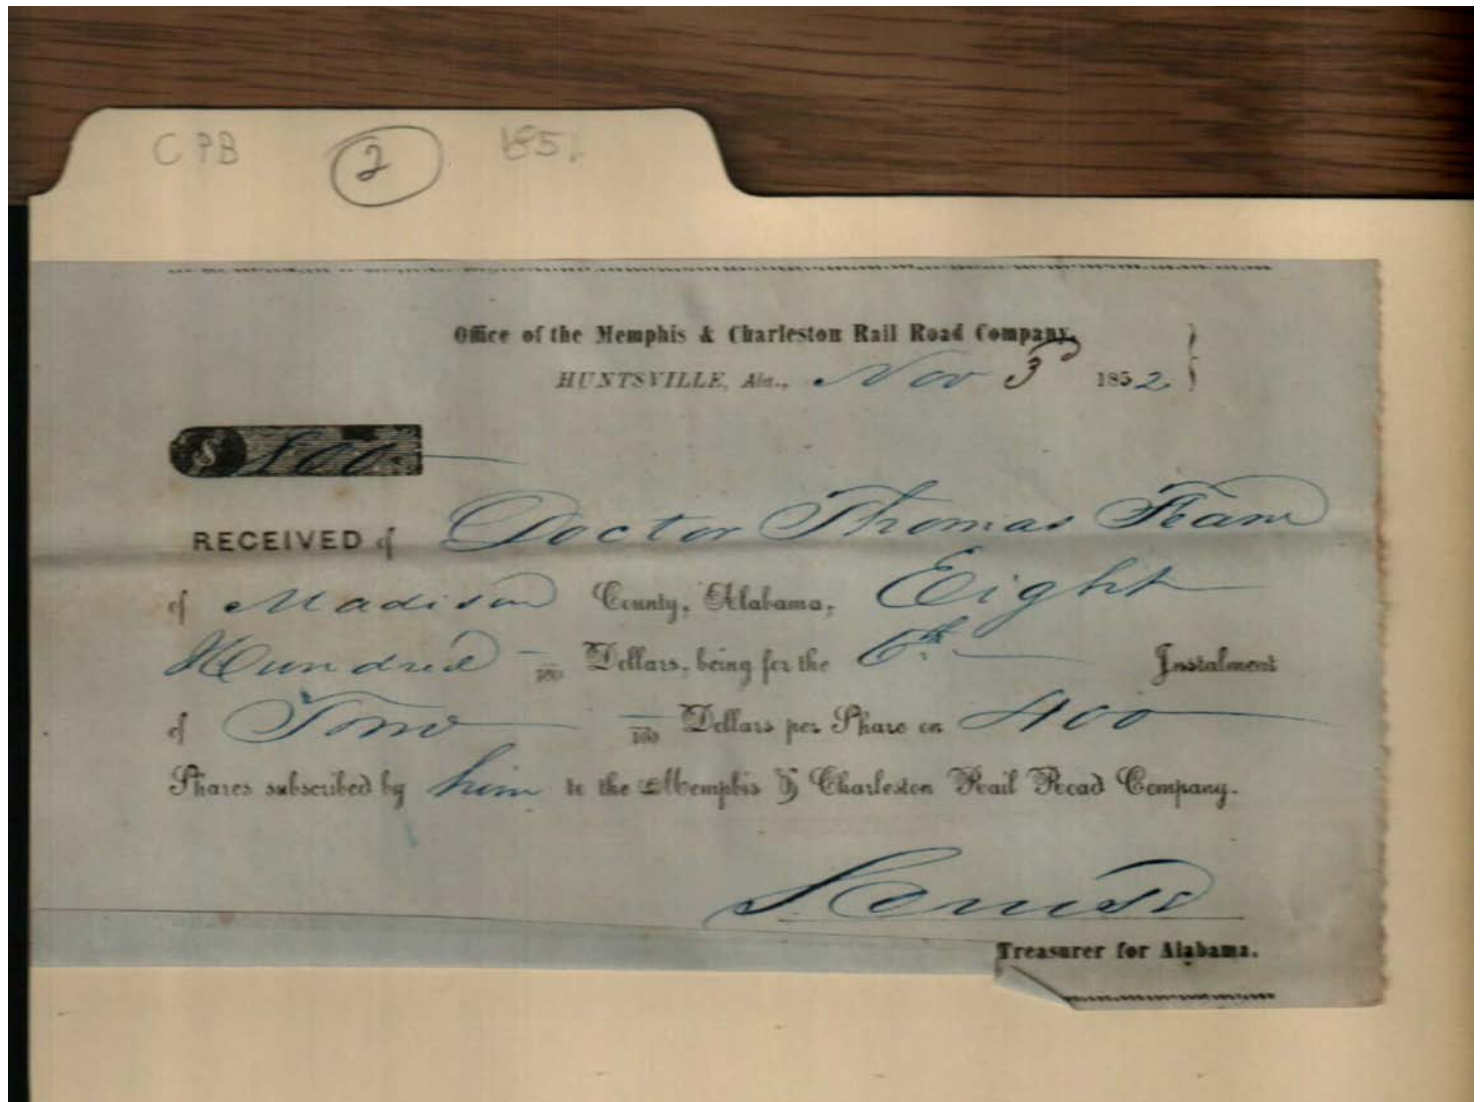 CPB 2 185
Office of the Memphis & Charleston Rail Road Company,
HUNTSVILLE, Ala., Nov 3d 1852
$ 800
RECEIVED of Doctor Thomas Fearn
of Madison County, Alabama, Eight
Hundred — /100 Dollars, being for the 6th Instalment
of Two — /100 Dollars per Share on 400
Shares subscribed by him to the Memphis & Charleston Rail Road Company.
Treasurer for Alabama.